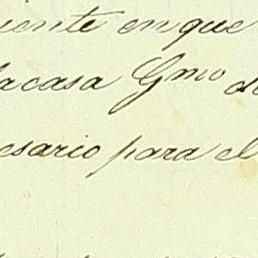 uente en que
la casa Gmo de
esario para el